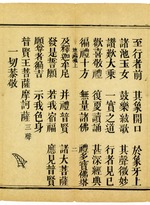 至行者前 其象開口 於象牙上
諸池玉女 鼓樂絃歌 其聲微妙
讚歎大乘 一實之道 行者見已
歡喜敬禮 復更讀誦 甚深經典
徧禮十方 無量諸佛 禮多寶佛塔
及釋迦牟尼 并禮普賢 諸大菩薩
發是誓願 若我宿福 應見普賢
願尊者徧吉 示我色身
普賢王菩薩摩訶薩
一切恭敬